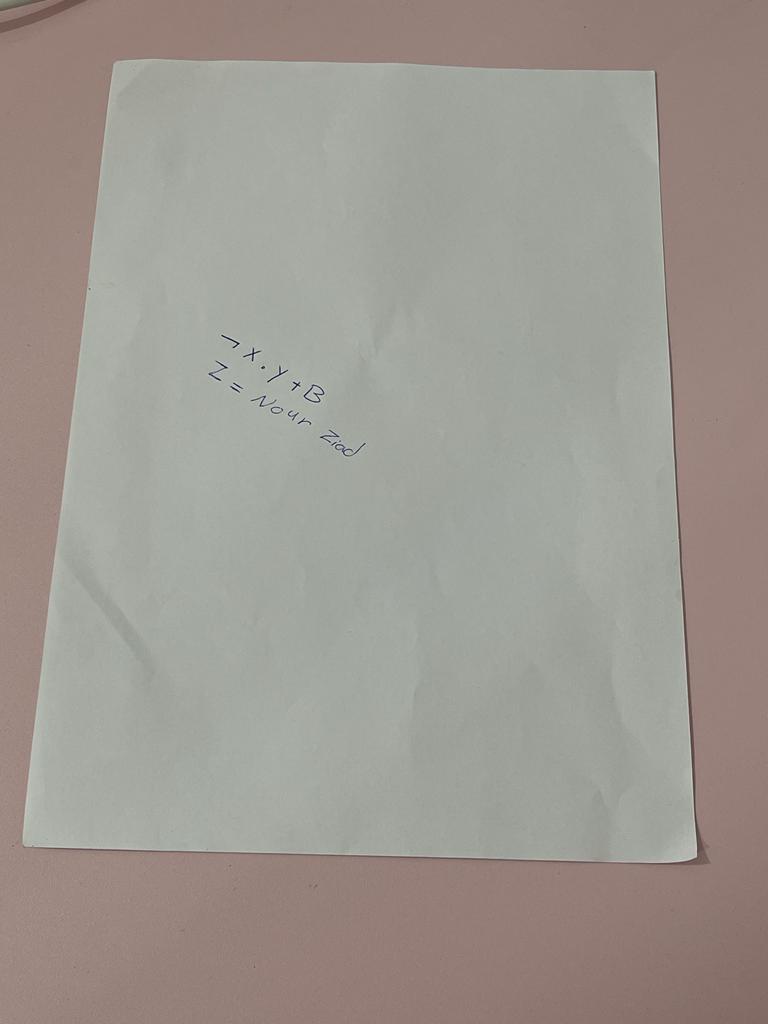 ¬ X . Y + B
Z = Nour Ziad